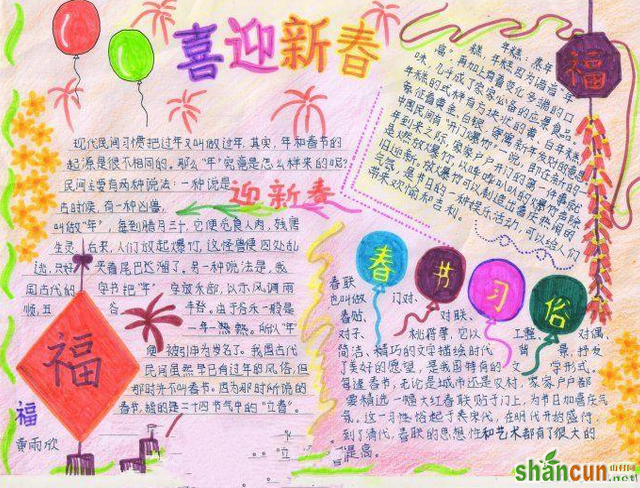 喜迎新春
现代民间习惯把过年又叫做过年.其实,年和春节的
起源是很不相同的。那么"年"究竟是怎么样来的呢?
民间主要有两种说法:一种说是
古时侯,有一种凶兽,
叫做"年",每到腊月三十,它便觅食人肉,残害
生灵。后来,人们放起爆竹,这怪兽便四处乱
逃,只好夹着尾巴逃溜了。另一种说法是,我
国古代的字书把"年"字放禾部,以示风调雨
顺,五谷丰登。由于谷禾一般是
一年一熟。所以"年"
便被引申为岁名了。我国古代
民间虽然早已有过年的风俗,但
那时并不叫春节。因为那时所说的
春节,指的是二十四节气中的"立春"。
迎新春
福
年糕:蒸年
糕,年糕因为谐音"年
高",再加上有着变化多端的口
味,几乎成了家家必备的应景食品
年糕的式样有方块状的黄、白年糕
象征着黄金、白银,寄寓新年发财的意思
中国民间有"开门爆竹"一说。即在新的一
年到来之际,家家户户开门的第一件事就
是燃放爆竹,以哔哔叭叭的爆竹声除
旧迎新。放爆竹可以创造出喜庆热闹的
气氛,是节日的一种娱乐活动,可以给人们
带来欢愉和吉利。
福
春节习俗
春联
也叫做门对、
春贴、对联、
对子、桃符等,它以工整、对偶、
简洁、精巧的文字描绘时代背景,抒发
了美好的愿望,是我国特有的文学形式。
每逢春节,无论是城市还是农村,家家户户都
要精选一幅大红春联贴于门上,为节日加喜庆气
氛。这一习俗起于宋代,在明代开始盛行,
到了清代,春联的思想性和艺术都有了很大的
提高。
福
黄雨欣
shancun
山村网
.net